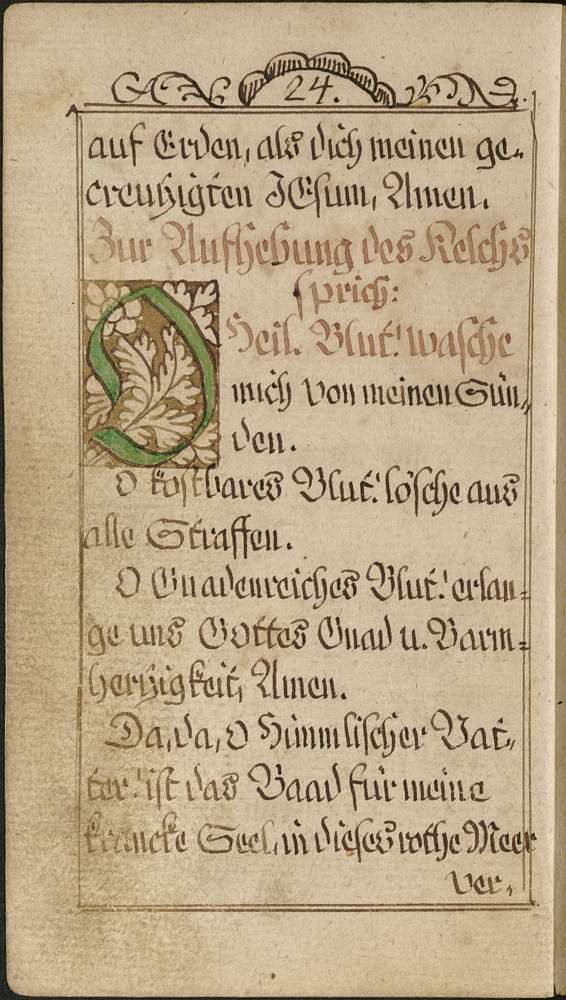 24.
auf Erden, als dich meinen ge-
creutzigten JEsum, Amen.
Zur Aufhebung des Kelchs
sprich:
O Heil. Blut! wasche
mich von meinen Sün-
den.
O kostbares Blut! lösche aus
alle Straffen.
O Gnadenreiches Blut! erlan=
ge uns Gottes Gnad u. Barm=
hertzigkeit, Amen.
Da, da, O Himmlischer Vat-
ter! ist das Baad für meine
krancke Seel, in dieses rothe Meer
ver-